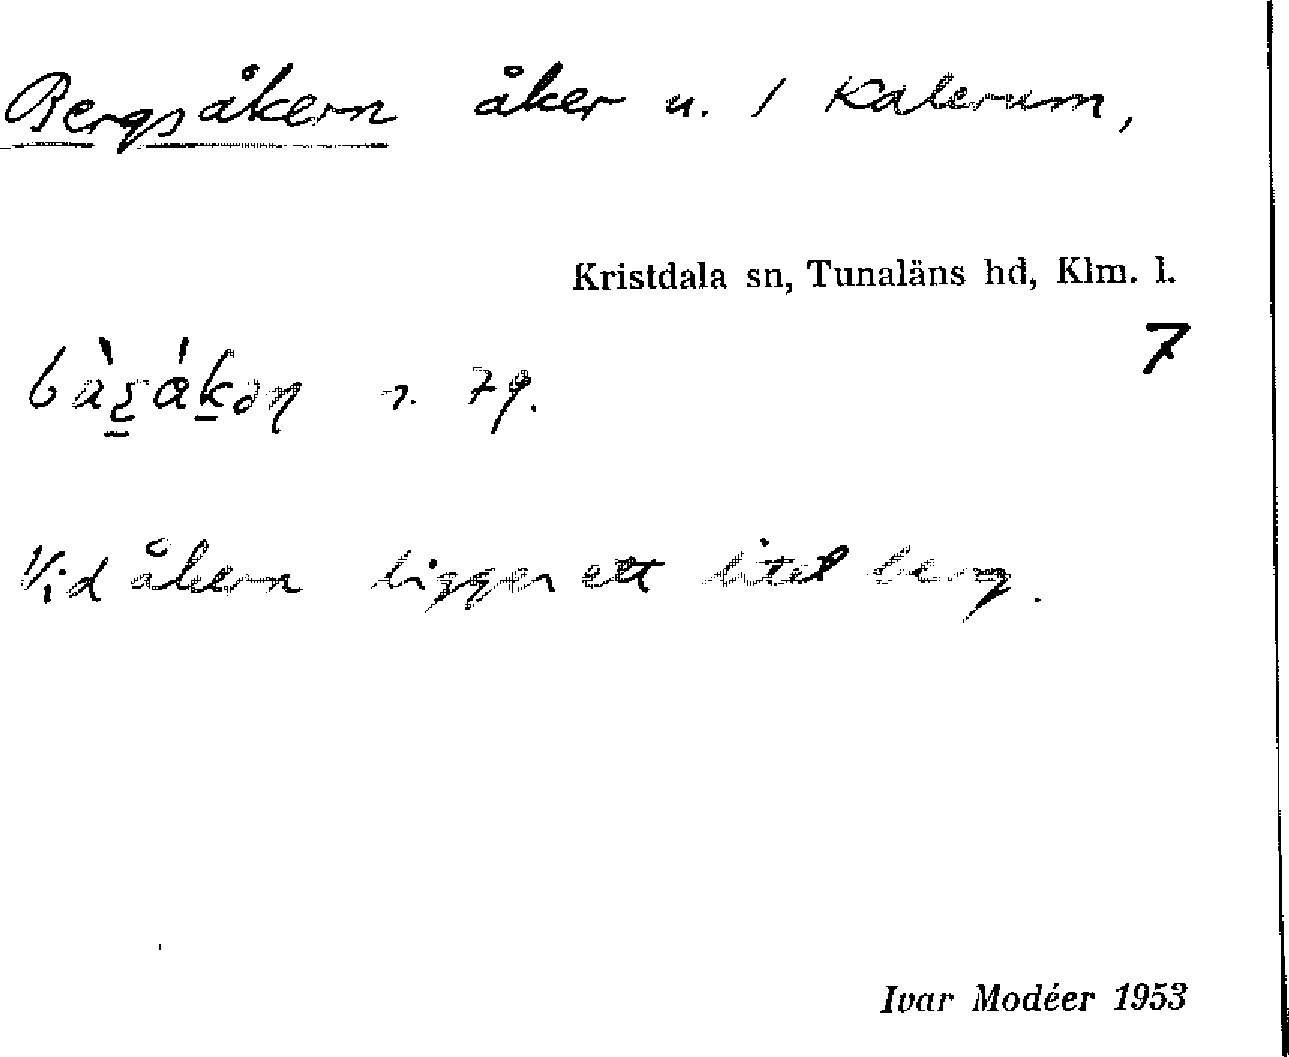 Bergsåkern åker u. 1 Kalerum,
Kristdala sn, Tunaläns hd, Klm. l.
7
79.
Vid åkern ligger ett litet berg.
Ivar Modéer 1953